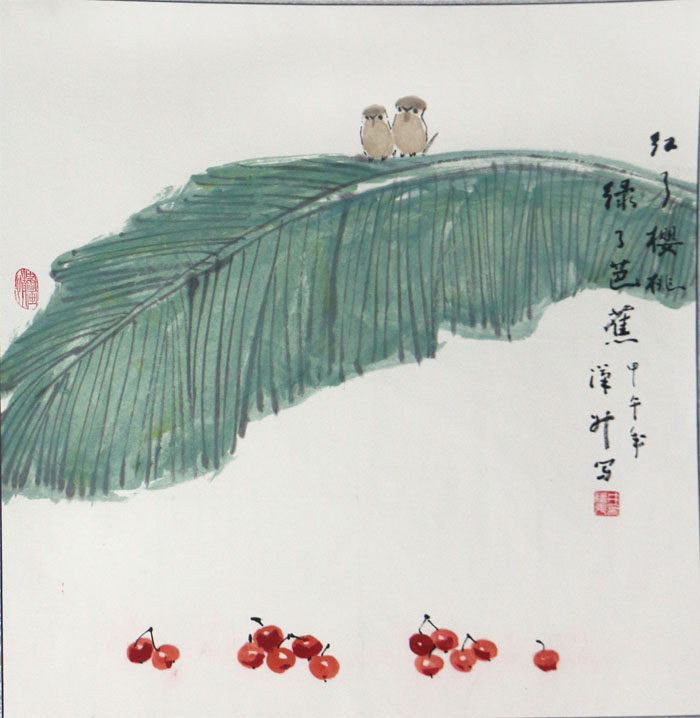 红了樱桃
绿了芭蕉
甲午年
汉升写